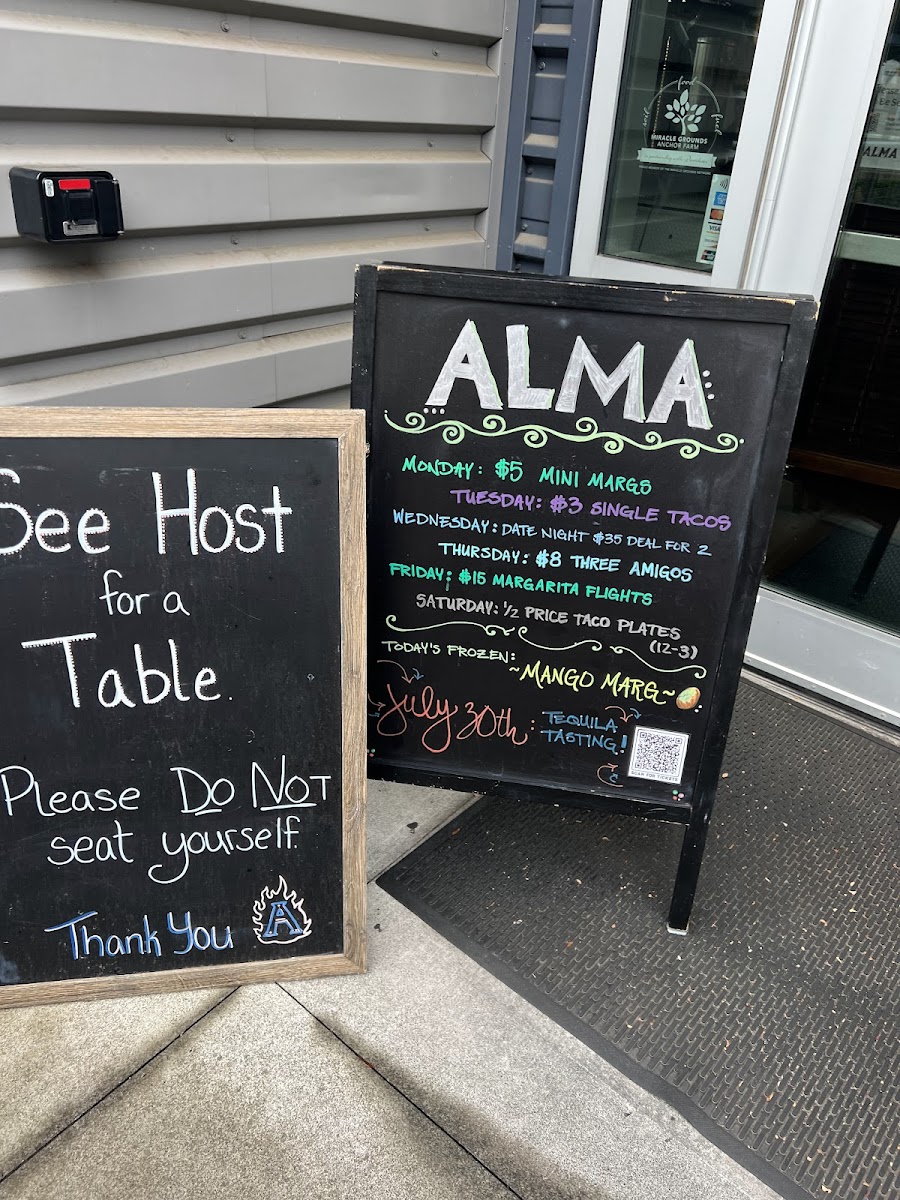 See Host
for a
Table.
Please Do Not
seat yourself.
Thank You A
ALMA
MONDAY: $5 MINI MARGS
TUESDAY: $3 SINGLE TACOS
WEDNESDAY: DATE NIGHT $35 DEAL FOR 2
THURSDAY: $8 THREE AMIGOS
FRIDAY: $15 MARGARITA FLIGHTS
SATURDAY: 1/2 PRICE TACO PLATES
(12-3)
TODAY'S FROZEN:
~MANGO MARG~
July 30th: TEQUILA
TASTING!
SCAN FOR TICKETS
food
MIRACLE GROUNDS
ANCHOR FARM
VISA
ALMA